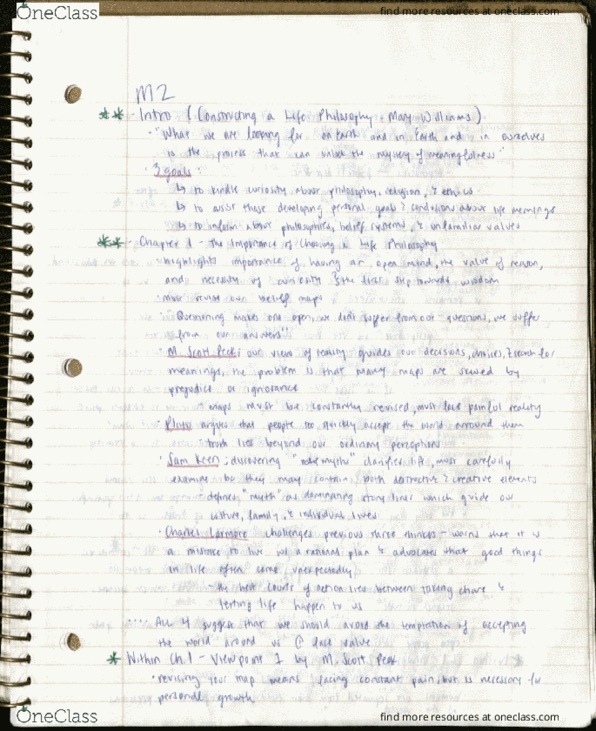 OneClass
find more resources at oneclass.com
M2
** Intro (Constructing a Life Philosophy - Mary Williams)
· "What we are looking for on Earth and in Earth and in ourselves
is the process that can unlock the mystery of meaningfulness"
· 3 goals:
↳ to kindle curiosity about philosophy, religion, & ethics
↳ to assist those developing personal goals & conditions about life meanings
↳ to inform about philosophies, belief systems, & unfamiliar values
** Chapter 1 - The Importance of Choosing a Life Philosophy
· highlights importance of having an open mind, the value of reason,
and necessity of curiosity the first step towards wisdom
· must revise our belief maps
· "Questioning makes one open, we don't suffer from our questions, we suffer
from our answers"
· M. Scott Peck: our views of reality guides our decisions, choices, & search for
meanings, the problem is that many maps are skewed by
prejudice or ignorance
- maps must be constantly revised, must face painful reality
· Plato argues that people too quickly accept the world around them
- truth lies beyond our ordinary perceptions
· Sam Keen: discovering "myths" clarifies life, must carefully
examine bc they may contain both destructive & creative elements
- defines "myth" as dominating story lines which guide our
culture, family, & individual lives
· Charles Larmore challenges previous three thinkers - warns that it is
a mistake to live w/ a rational plan & advocates that good things
in life often come unexpectedly
- the best course of action lies between taking charge &
letting life happen to us
... All 4 suggest that we should avoid the temptation of accepting
the world around us @ face value
* Within Ch. 1 - Viewpoint 1 by M. Scott Peck
· revising your map means facing constant pain, but is necessary for
personal growth
OneClass
find more resources at oneclass.com